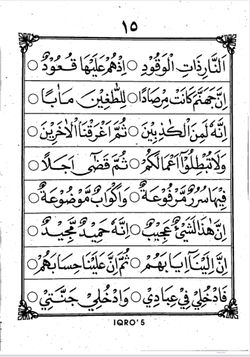 ١٥
اَلنَّارِذَاتِ الْوَقُوْدِ ○ اِذْهُمْ عَلَيْهَا قُعُوْدٌ ○
اِنَّ جَهَنَّمَ كَانَتْ مِرْصَادًا ○ لِلطّٰغِيْنَ مَاٰبًا ○
اِنَّهُ لَمِنَ الْكٰذِبِيْنَ ○ ثُمَّ اَغْرَقْنَا الْاٰخَرِيْنَ ○
وَلَا تُبْطِلُوْٓا اَعْمَالَكُمْ ○ ثُمَّ قَضٰٓى اَجَلًا ○
فِيْهَا سُرُرٌ مَّرْفُوْعَةٌ ○ وَاَكْوَابٌ مَّوْضُوْعَةٌ ○
اِنَّ هٰذَا لَشَيْءٌ عَجِيْبٌ ○ اِنَّهُ حَمِيْدٌ مَّجِيْدٌ ○
اِنَّ اِلَيْنَآ اِيَابَهُمْ ○ ثُمَّ اِنَّ عَلَيْنَا حِسَابَهُمْ ○
فَادْخُلِيْ فِيْ عِبَادِيْ ○ وَادْخُلِيْ جَنَّتِيْ ○
IQRO' 5